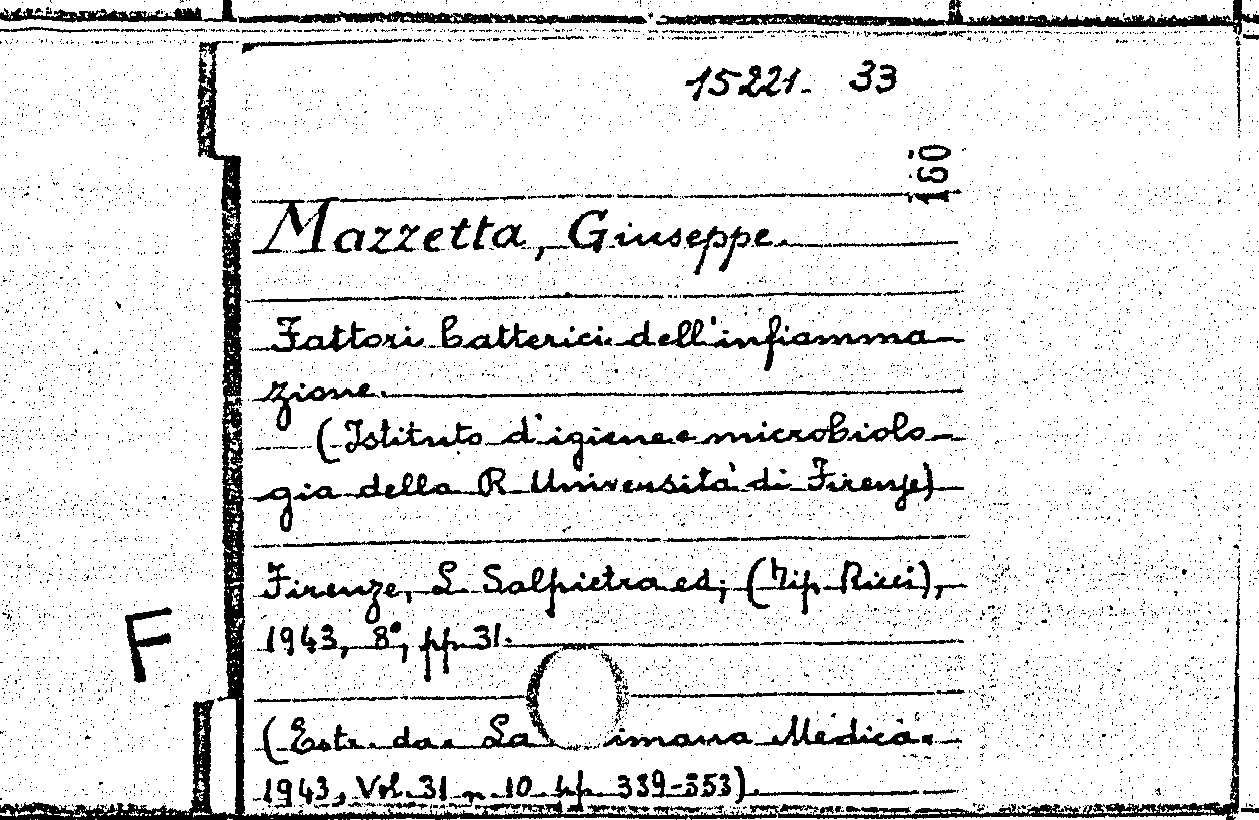 15221. 33
160
Mazzetta, Giuseppe.
Fattori batterici dell'infiamma
zione.
(Istituto d'igiene e microbiolo
gia della R Università di Firenze)
Firenze, L Salpietra ed; (Tip. Ricci),
1943, 8°, pp. 31.
F
(Estr. da. La imana Medica.
1943, Vol. 31 n. 10 pp. 339-353).